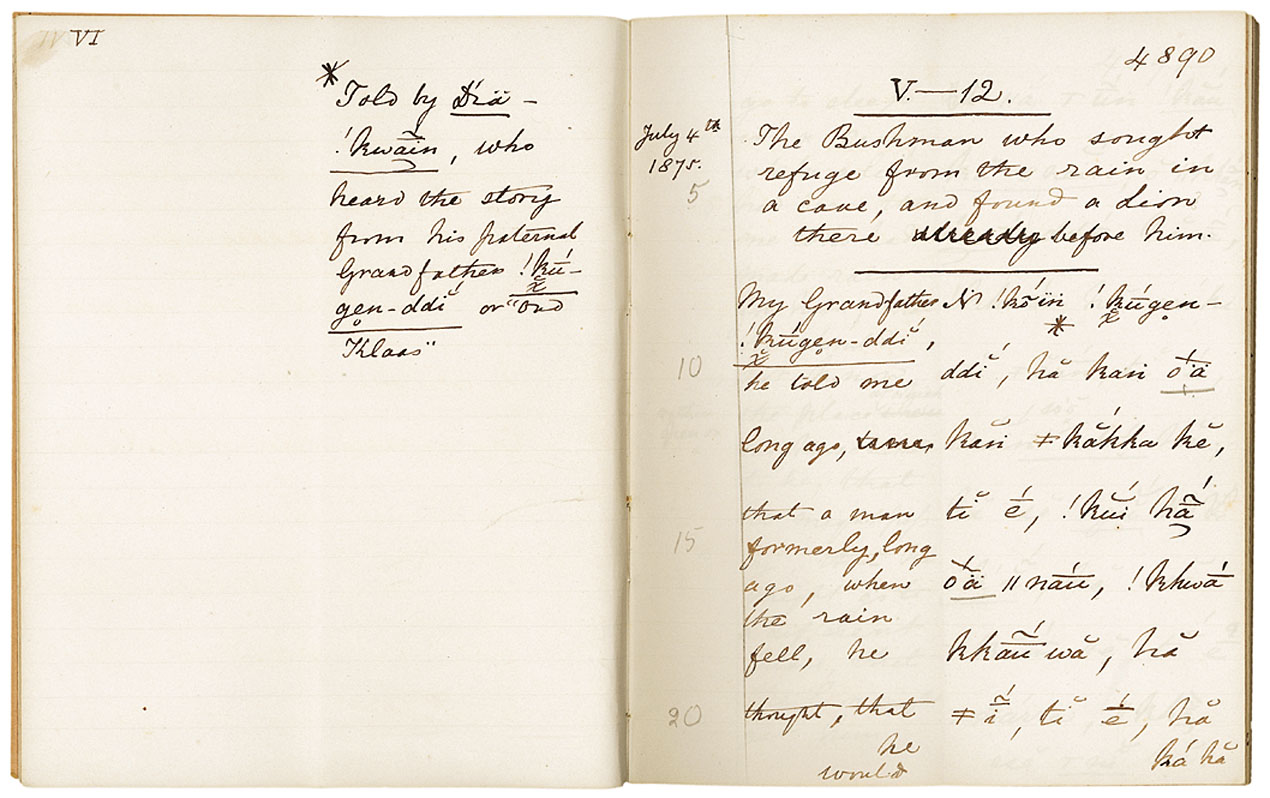 VI
* Told by Díä-
!kwāin, who
heard the story
from his paternal
Grandfather !χkú-
gen-ddĭ or "Oud
Klaas"
4890
V.—12.
July 4th
1875.
The Bushman who sought
refuge from the rain in
5
a cave, and found a lion
there already before him.
My Grandfather N !kŏ́ïn !χkúgen-
!χkúgen-ddĭ, *
10
he told me ddĭ́, hă kan ŏ́ä
long ago, kăn ǂkắkka kĕ,
that a man tĭ é̄, !kŭ́i hā̃́
15
formerly, long
ago, when ŏ́ä ǁnā́u, !khwā́
the rain
fell, he kkā̃́u wă, hă
20
thought, that ǂī̃́, tĭ é̄, hă
he ká hă
would